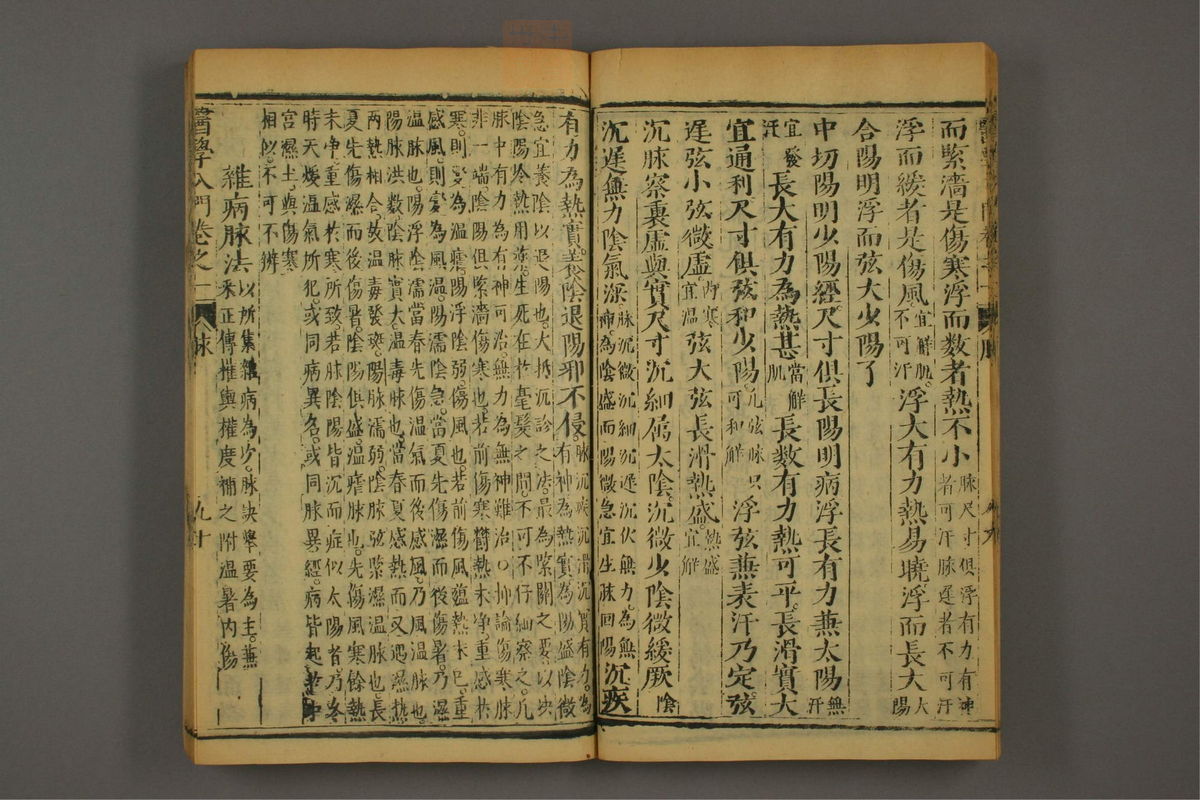 而緊濇是傷寒浮而数者熱不小脉尺寸俱浮有力有神者可汗脉遅者不可汗
浮而緩者是傷風宜解肌不可汗浮大有力熱易曉浮而長大太陽
合陽明浮而弦大少陽了
中切陽明少陽經尺寸俱長陽明病浮長有力兼太陽無汗
宜發汗長大有力為熱甚當解肌長数有力熱可平長滑實大
宜通利尺寸俱弦和少陽凡弦脉只可和解浮弦兼表汗乃定弦
遅弦小弦微虛内寒宜温弦大弦長滑熱盛熱盛宜解
沉脉察裏虛與實尺寸沉細属太陰沉微少陰微緩厥陰
沉遅無力陰氣深脉沉微沉細沉遅沉伏無力為無神為陰盛而陽微急宜生脉回陽沉疾
有力為熱實養陰退陽邪不侵脉沉疾沉滑沉實有力為有神為熱實為陽盛陰微
急宜養陰以退陽也大抵沉診之法最為緊關之要以决
陰陽冷熱用藥生死在於毫髮之間不可不仔細察之凡
脉中有力為有神可治無力為無神難治○抑論傷寒脉
非一端陰陽俱緊濇傷寒也若前傷寒鬱熱未净重感於
寒則變為温瘧陽浮陰弱傷風也若前傷風蘊熱未已重
感風則変為風温陽濡陰急當夏先傷濕而後傷暑乃濕
温脉也陽浮陰濡當春先傷温氣而後感風乃風温脉也
陽脉洪数陰脉實大温毒脉也當春夏感熱而又遇濕熱
两熱相合故温毒發斑陽脉濡弱陰脉弦緊濕温脉也長
夏先傷濕而後傷暑陰陽俱盛温瘧脉也先傷風寒餘熱
未争重感於寒所致若脉陰陽皆沉而症似太陽者乃冬
時天煖温氣所犯或同病異名或同脉異經病皆起於中
宮濕土與傷寒相似不可不辨
雜病脉法以所集雜病為少脉訣舉要為主兼采正傳權輿權度補之附温暑内傷
醫學入門卷之一
脉
九十